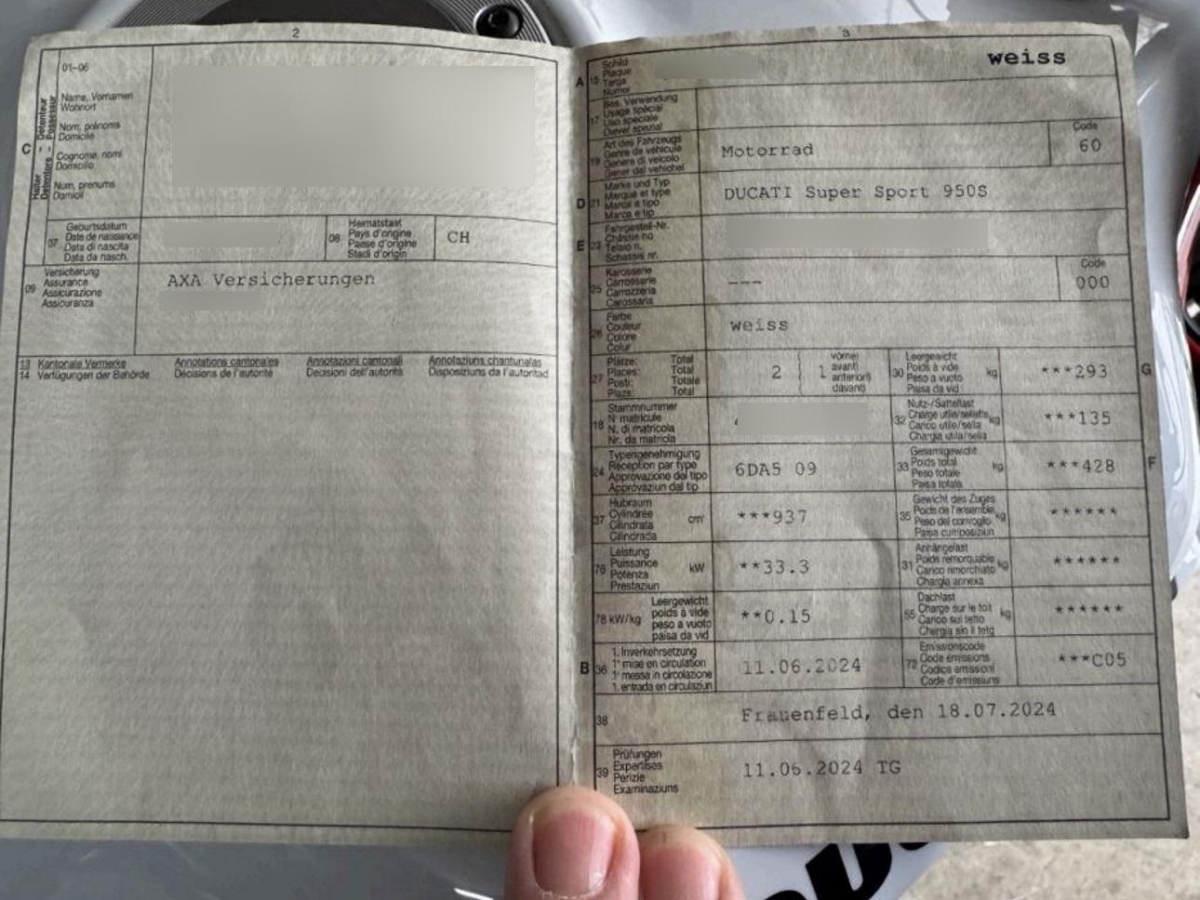 2
01-06
Name, Vornamen
Wohnort
Nom, prénoms
Domicile
Cognome, nomi
Domicilio
Num, prenums
Domicil
C
Halter Détenteur
Detentore Possessur
07
Geburtsdatum
Date de naissance
Data di nascita
Data da nasch.
08
Heimatstaat
Pays d'origine
Paese d'origine
Stadi d'origin
CH
09
Versicherung
Assurance
Assicurazione
Assicuranza
AXA Versicherungen
13 Kantonale Vermerke Annotations cantonales Annotazioni cantonali Annotaziuns chantunalas
14 Verfügungen der Behörde Décisions de l'autorité Decisioni dell'autorità Disposiziuns da l'autoritad
3
A 15
Schild
Plaque
Targa
Numer
weiss
17
Bes. Verwendung
Usage spécial
Uso speciale
Diever spezial
19
Art des Fahrzeugs
Genre de véhicule
Genere di veicolo
Gener dal vehichel
Motorrad
Code
60
D 21
Marke und Typ
Marque et type
Marca e tipo
Marca e tip
DUCATI Super Sport 950S
E 23
Fahrgestell-Nr.
Châssis no
Telaio n.
Schassis nr.
25
Karosserie
Carrosserie
Carrozzeria
Carossaria
---
Code
000
26
Farbe
Couleur
Colore
Colur
weiss
27
Plätze: Total
Places: Total
Posti: Totale
Plazs: Total
2
1
vorne
avant
anteriori
davant
30
Leergewicht
Poids à vide
Peso a vuoto
Paisa da vid
kg
***293
G
18
Stammnummer
N° matricule
N. di matricola
Nr. da matricla
32
Nutz-/Sattellast
Charge utile/sellette
Carico utile/sella
Chargia utila/sella
kg
***135
24
Typengenehmigung
Réception par type
Approvazione del tipo
Approvaziun dal tip
6DA5 09
33
Gesamtgewicht
Poids total
Peso totale
Paisa totala
kg
***428
F
37
Hubraum
Cylindrée
Cilindrata
Cilindrada
cm³
***937
35
Gewicht des Zuges
Poids de l'ensemble
Peso del convoglio
Paisa cumposiziun
kg
******
76
Leistung
Puissance
Potenza
Prestaziun
kW
**33.3
31
Anhängelast
Poids remorquable
Carico rimorchiato
Chargia annexa
kg
******
78 kW/kg
Leergewicht
poids à vide
peso a vuoto
paisa da vid
**0.15
55
Dachlast
Charge sur le toit
Carico sul tetto
Chargia sin il tetg
kg
******
B 36
1. Inverkehrsetzung
1re mise en circulation
1a messa in circolazione
1. entrada en circulaziun
11.06.2024
72
Emissionscode
Code émissions
Codice emissioni
Code d'emissiuns
***C05
38
Frauenfeld, den 18.07.2024
39
Prüfungen
Expertises
Perizie
Examinaziuns
11.06.2024 TG